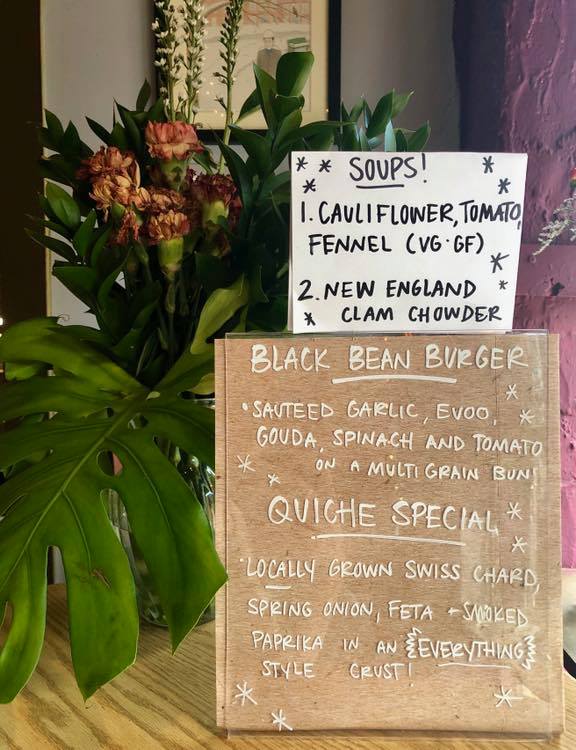 SOUPS!
1. CAULIFLOWER, TOMATO,
FENNEL (VG·GF)
2. NEW ENGLAND
CLAM CHOWDER
BLACK BEAN BURGER
•SAUTEED GARLIC, EVOO,
GOUDA, SPINACH AND TOMATO
ON A MULTI GRAIN BUN!
QUICHE SPECIAL
·LOCALLY GROWN SWISS CHARD,
SPRING ONION, FETA + SMOKED
PAPRIKA IN AN EVERYTHING
STYLE CRUST!